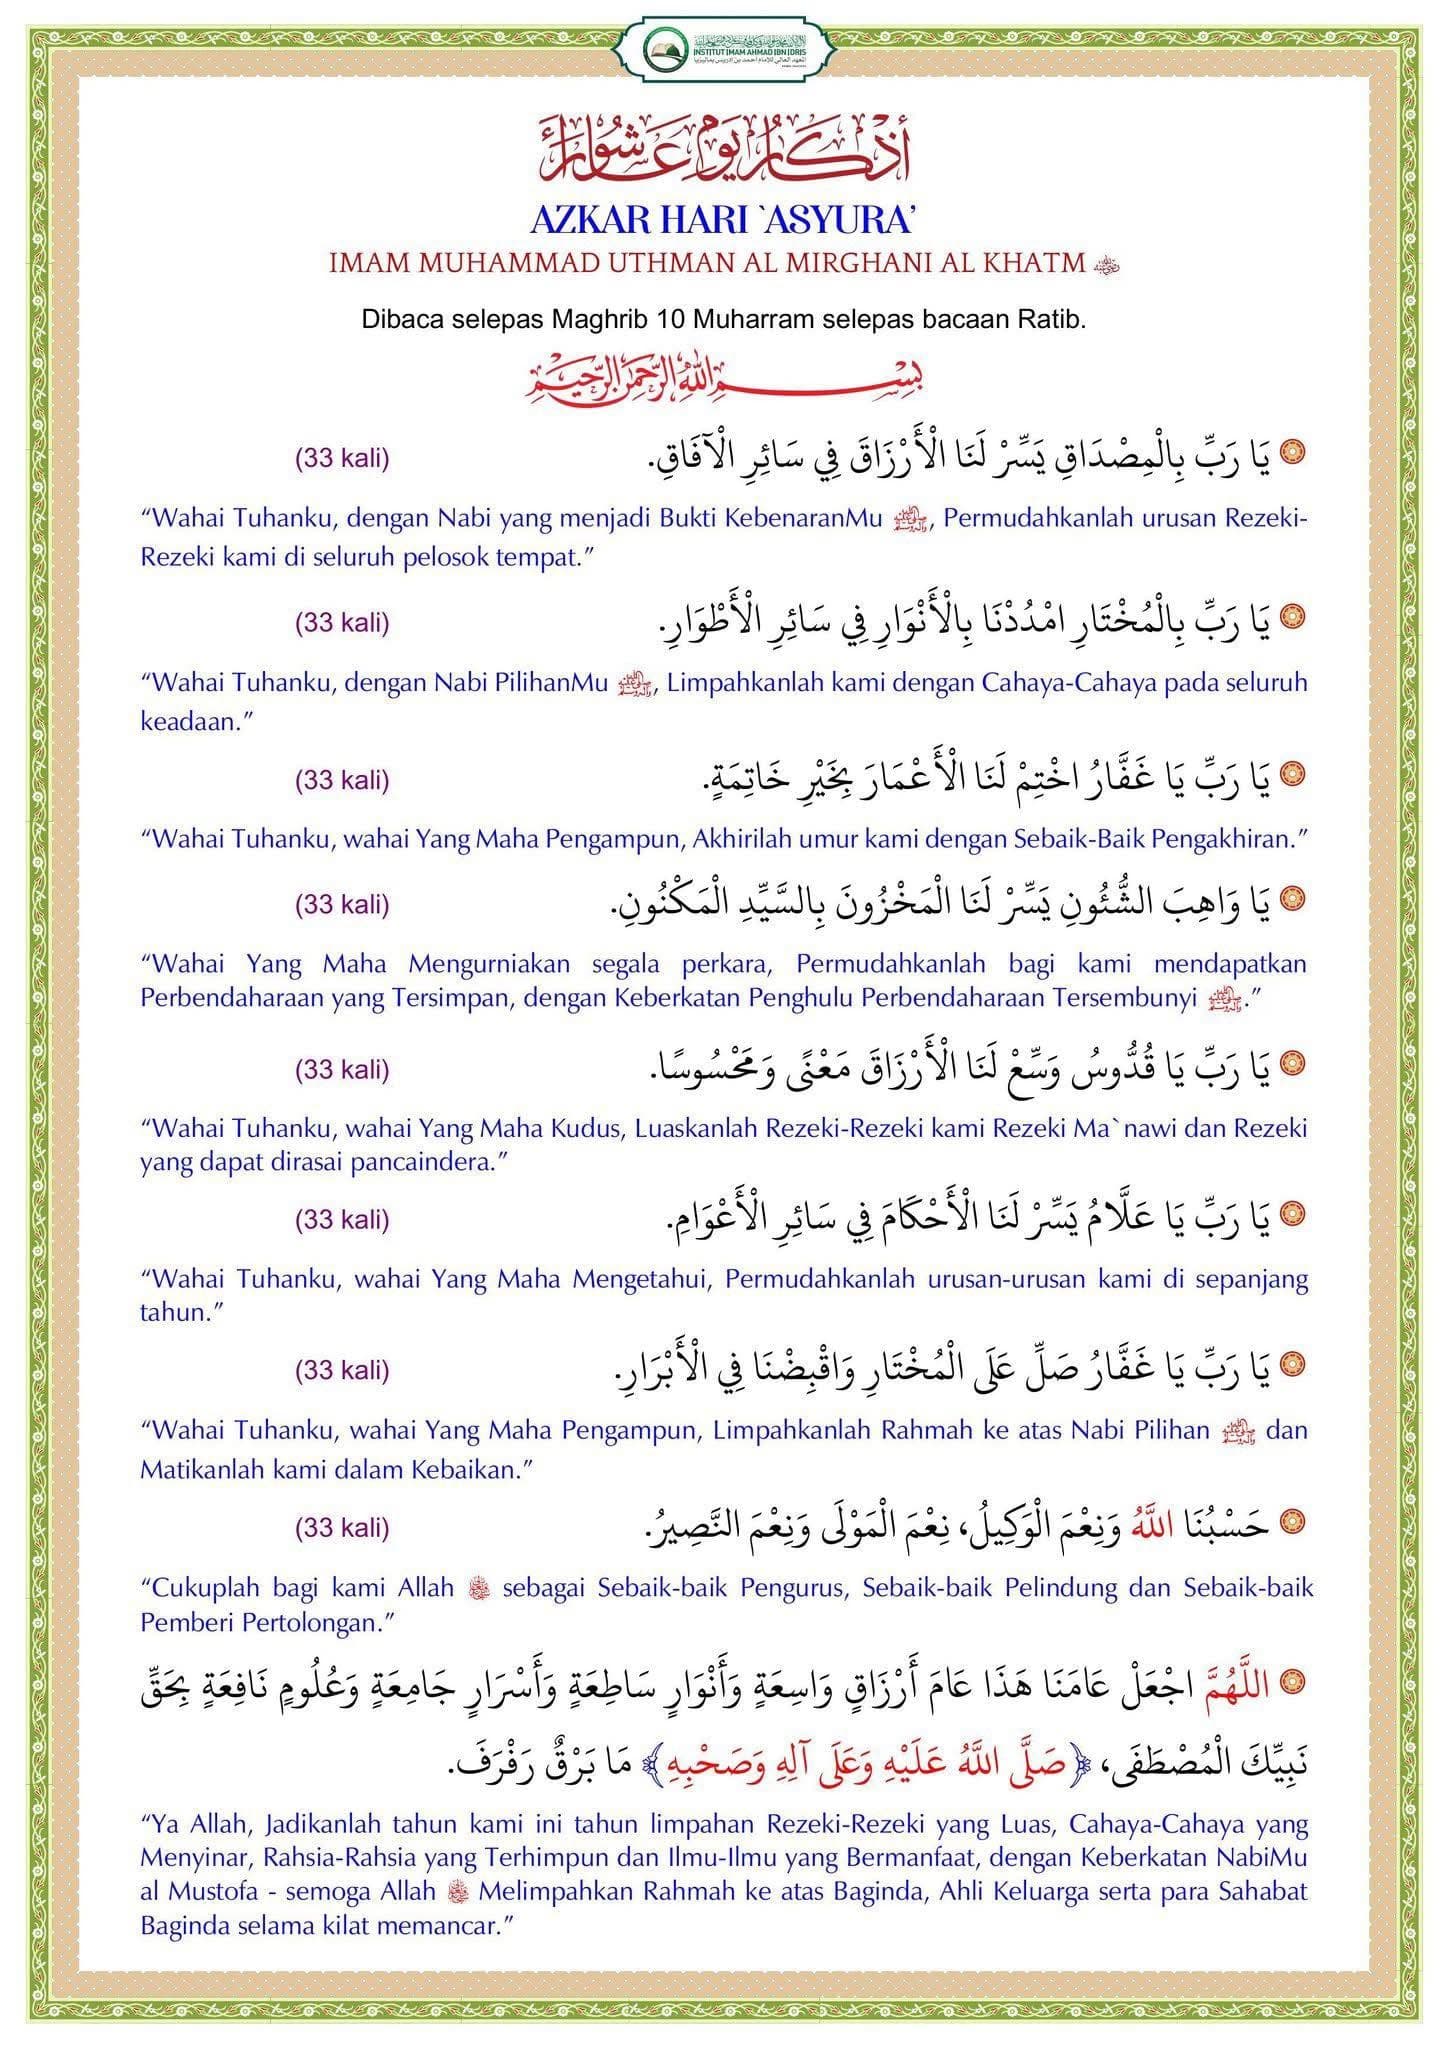 INSTITUT IMAM AHMAD IBN IDRIS
المعهد العالي للإمام أحمد بن إدريس بماليزيا
أذكار يوم عاشوراء
AZKAR HARI `ASYURA’
IMAM MUHAMMAD UTHMAN AL MIRGHANI AL KHATM
Dibaca selepas Maghrib 10 Muharram selepas bacaan Ratib.
بِسْمِ اللَّهِ الرَّحْمَٰنِ الرَّحِيمِ
يَا رَبِّ بِالْمِصْدَاقِ يَسِّرْ لَنَا الْأَرْزَاقَ فِي سَائِرِ الْآفَاقِ. (33 kali)
“Wahai Tuhanku, dengan Nabi yang menjadi Bukti KebenaranMu ﷺ, Permudahkanlah urusan Rezeki-
Rezeki kami di seluruh pelosok tempat.”
يَا رَبِّ بِالْمُخْتَارِ امْدُدْنَا بِالْأَنْوَارِ فِي سَائِرِ الْأَطْوَارِ. (33 kali)
“Wahai Tuhanku, dengan Nabi PilihanMu ﷺ, Limpahkanlah kami dengan Cahaya-Cahaya pada seluruh
keadaan.”
يَا رَبِّ يَا غَفَّارُ اخْتِمْ لَنَا الْأَعْمَارَ بِخَيْرِ خَاتِمَةٍ. (33 kali)
“Wahai Tuhanku, wahai Yang Maha Pengampun, Akhirilah umur kami dengan Sebaik-Baik Pengakhiran.”
يَا وَاهِبَ الشُّئُونِ يَسِّرْ لَنَا الْمَخْزُونَ بِالسَّيِّدِ الْمَكْنُونِ. (33 kali)
“Wahai Yang Maha Mengurniakan segala perkara, Permudahkanlah bagi kami mendapatkan
Perbendaharaan yang Tersimpan, dengan Keberkatan Penghulu Perbendaharaan Tersembunyi ﷺ.”
يَا رَبِّ يَا قُدُّوسُ وَسِّعْ لَنَا الْأَرْزَاقَ مَعْنًى وَمَحْسُوسًا. (33 kali)
“Wahai Tuhanku, wahai Yang Maha Kudus, Luaskanlah Rezeki-Rezeki kami Rezeki Ma`nawi dan Rezeki
yang dapat dirasai pancaindera.”
يَا رَبِّ يَا عَلَّامُ يَسِّرْ لَنَا الْأَحْكَامَ فِي سَائِرِ الْأَعْوَامِ. (33 kali)
“Wahai Tuhanku, wahai Yang Maha Mengetahui, Permudahkanlah urusan-urusan kami di sepanjang
tahun.”
يَا رَبِّ يَا غَفَّارُ صَلِّ عَلَى الْمُخْتَارِ وَاقْبِضْنَا فِي الْأَبْرَارِ. (33 kali)
“Wahai Tuhanku, wahai Yang Maha Pengampun, Limpahkanlah Rahmah ke atas Nabi Pilihan ﷺ dan
Matikanlah kami dalam Kebaikan.”
حَسْبُنَا اللَّهُ وَنِعْمَ الْوَكِيلُ، نِعْمَ الْمَوْلَى وَنِعْمَ النَّصِيرُ. (33 kali)
“Cukuplah bagi kami Allah ﷻ sebagai Sebaik-baik Pengurus, Sebaik-baik Pelindung dan Sebaik-baik
Pemberi Pertolongan.”
اللَّهُمَّ اجْعَلْ عَامَنَا هَذَا عَامَ أَرْزَاقٍ وَاسِعَةٍ وَأَنْوَارٍ سَاطِعَةٍ وَأَسْرَارٍ جَامِعَةٍ وَعُلُومٍ نَافِعَةٍ بِحَقِّ
نَبِيِّكَ الْمُصْطَفَى، ﴿صَلَّى اللَّهُ عَلَيْهِ وَعَلَى آلِهِ وَصَحْبِهِ﴾ مَا بَرْقٌ رَفْرَفَ.
“Ya Allah, Jadikanlah tahun kami ini tahun limpahan Rezeki-Rezeki yang Luas, Cahaya-Cahaya yang
Menyinar, Rahsia-Rahsia yang Terhimpun dan Ilmu-Ilmu yang Bermanfaat, dengan Keberkatan NabiMu
al Mustofa - semoga Allah ﷻ Melimpahkan Rahmah ke atas Baginda, Ahli Keluarga serta para Sahabat
Baginda selama kilat memancar.”